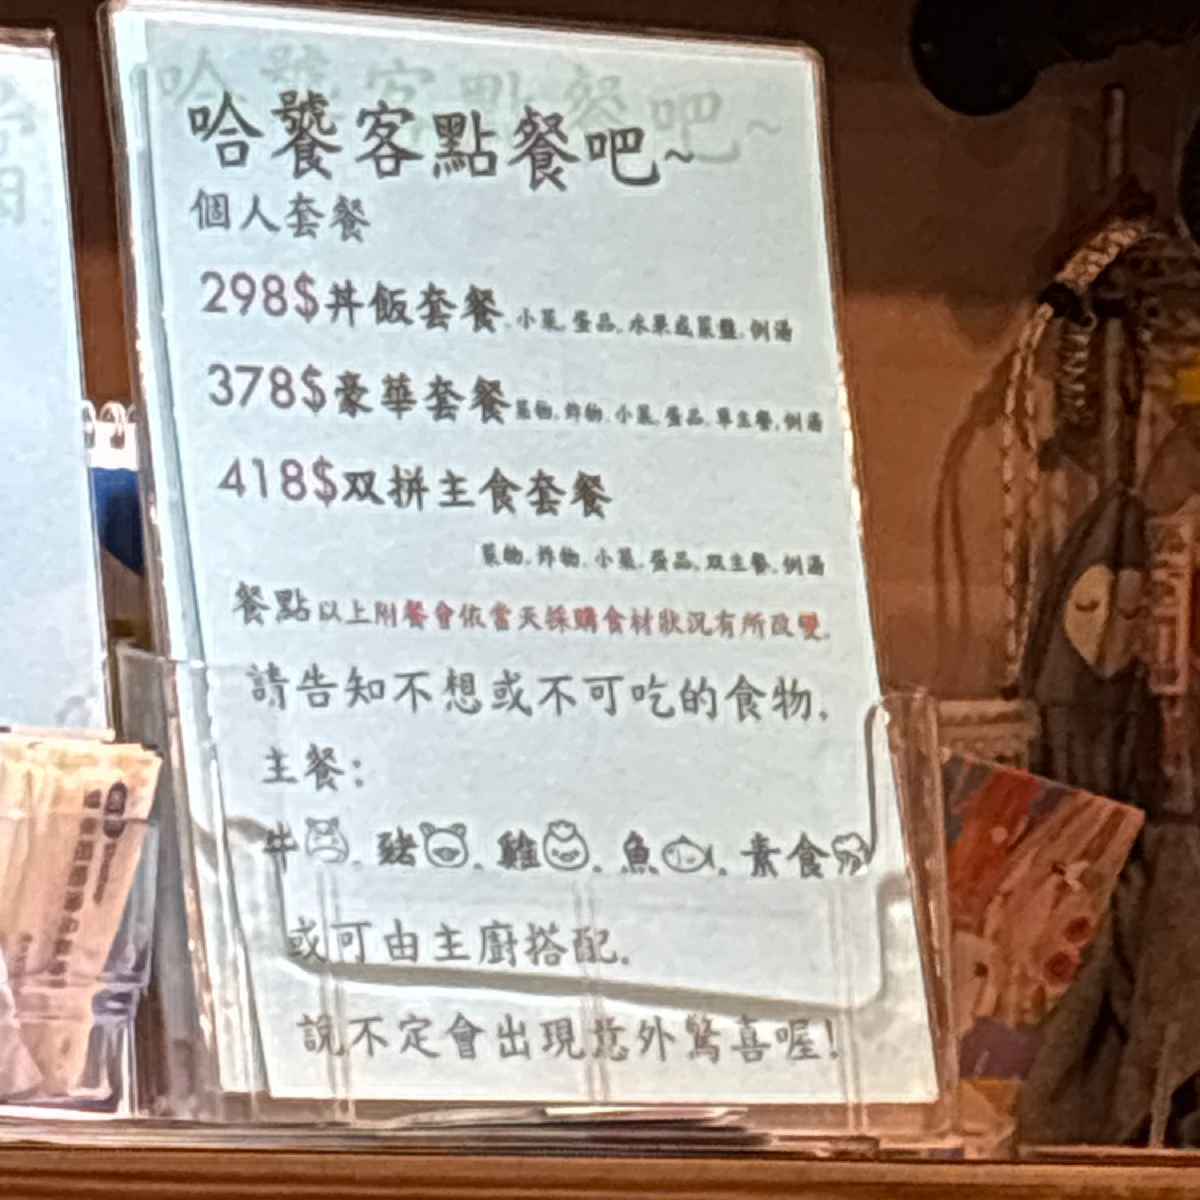 哈饕客點餐吧~
個人套餐
298$丼飯套餐.小菜.蛋品.水果或菜盤.例湯
378$豪華套餐菜物.炸物.小菜.蛋品.單主餐.例湯
418$双拼主食套餐
菜物.炸物.小菜.蛋品.双主餐.例湯
餐點以上附餐會依當天採購食材狀況有所改變.
請告知不想或不可吃的食物.
主餐:
牛.豬.雞.魚.素食
或可由主廚搭配.
說不定會出現意外驚喜喔!